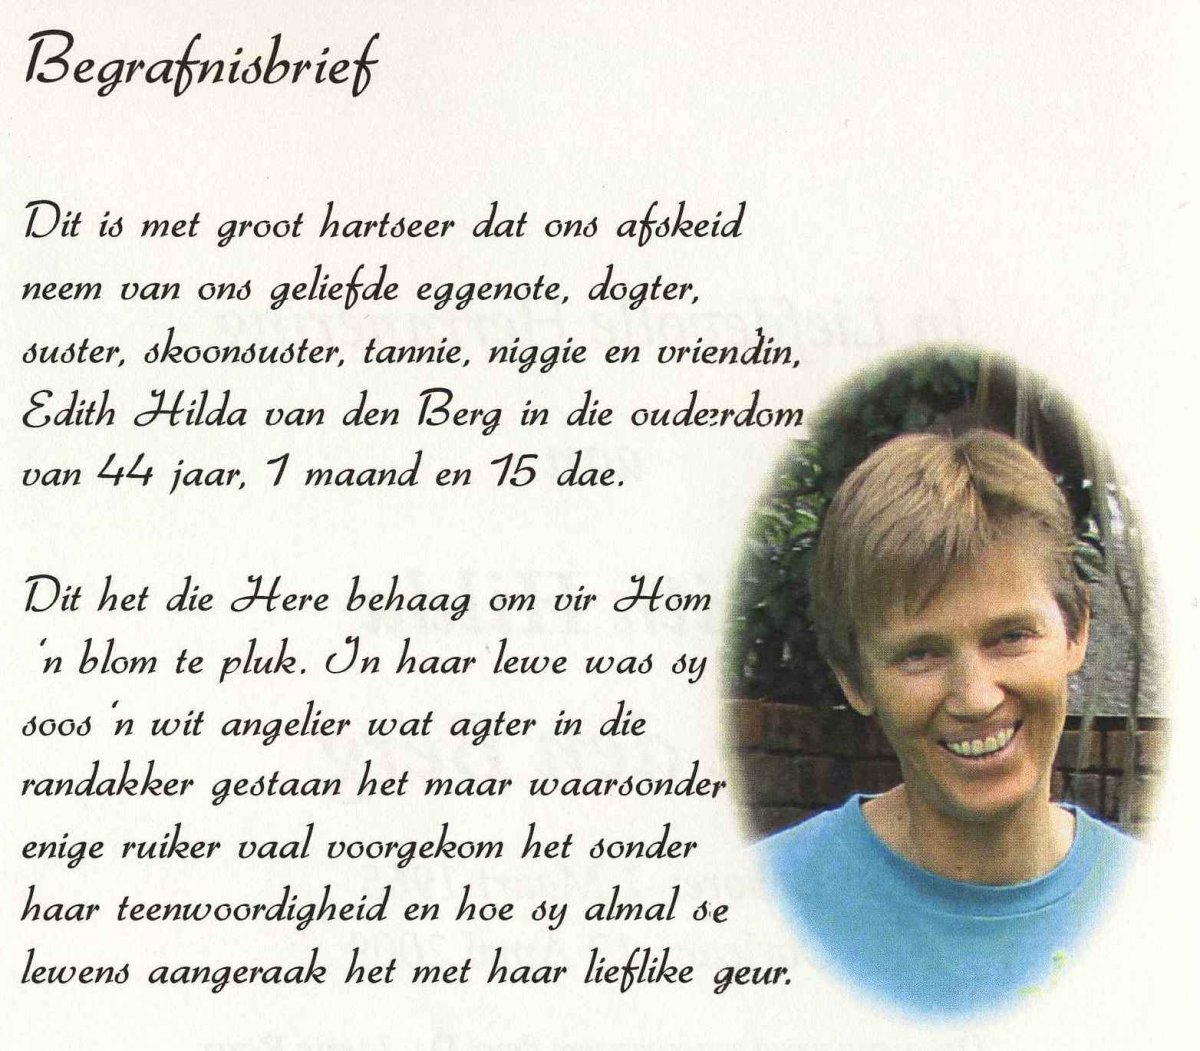 Begrafnisbrief
Dit is met groot hartseer dat ons afskeid
neem van ons geliefde eggenote, dogter,
suster, skoonsuster, tannie, niggie en vriendin,
Edith Hilda van den Berg in die ouderdom
van 44 jaar, 1 maand en 15 dae.
Dit het die Here behaag om vir Hom
'n blom te pluk. In haar lewe was sy
soos 'n wit angelier wat agter in die
randakker gestaan het maar waarsonder
enige ruiker vaal voorgekom het sonder
haar teenwoordigheid en hoe sy almal se
lewens aangeraak het met haar lieflike geur.